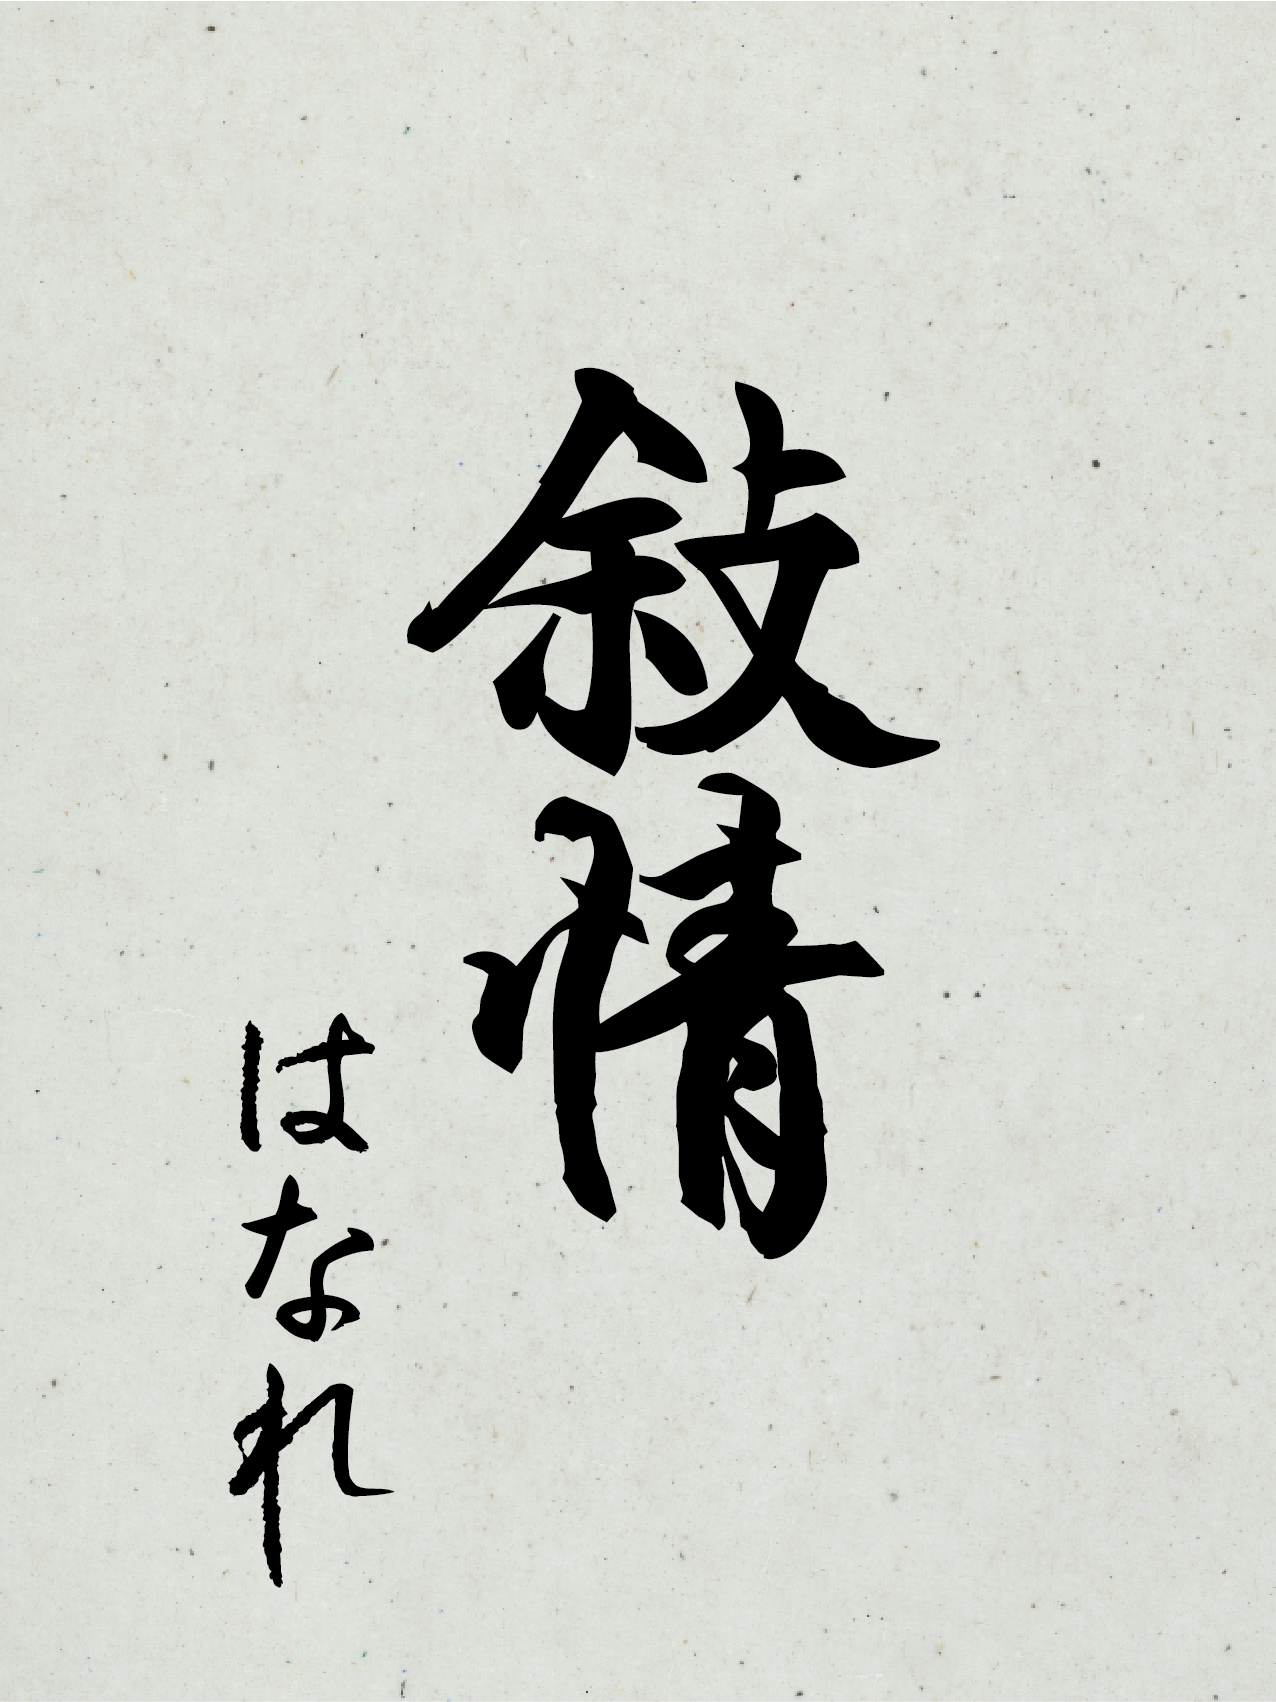 敍情
はなれ